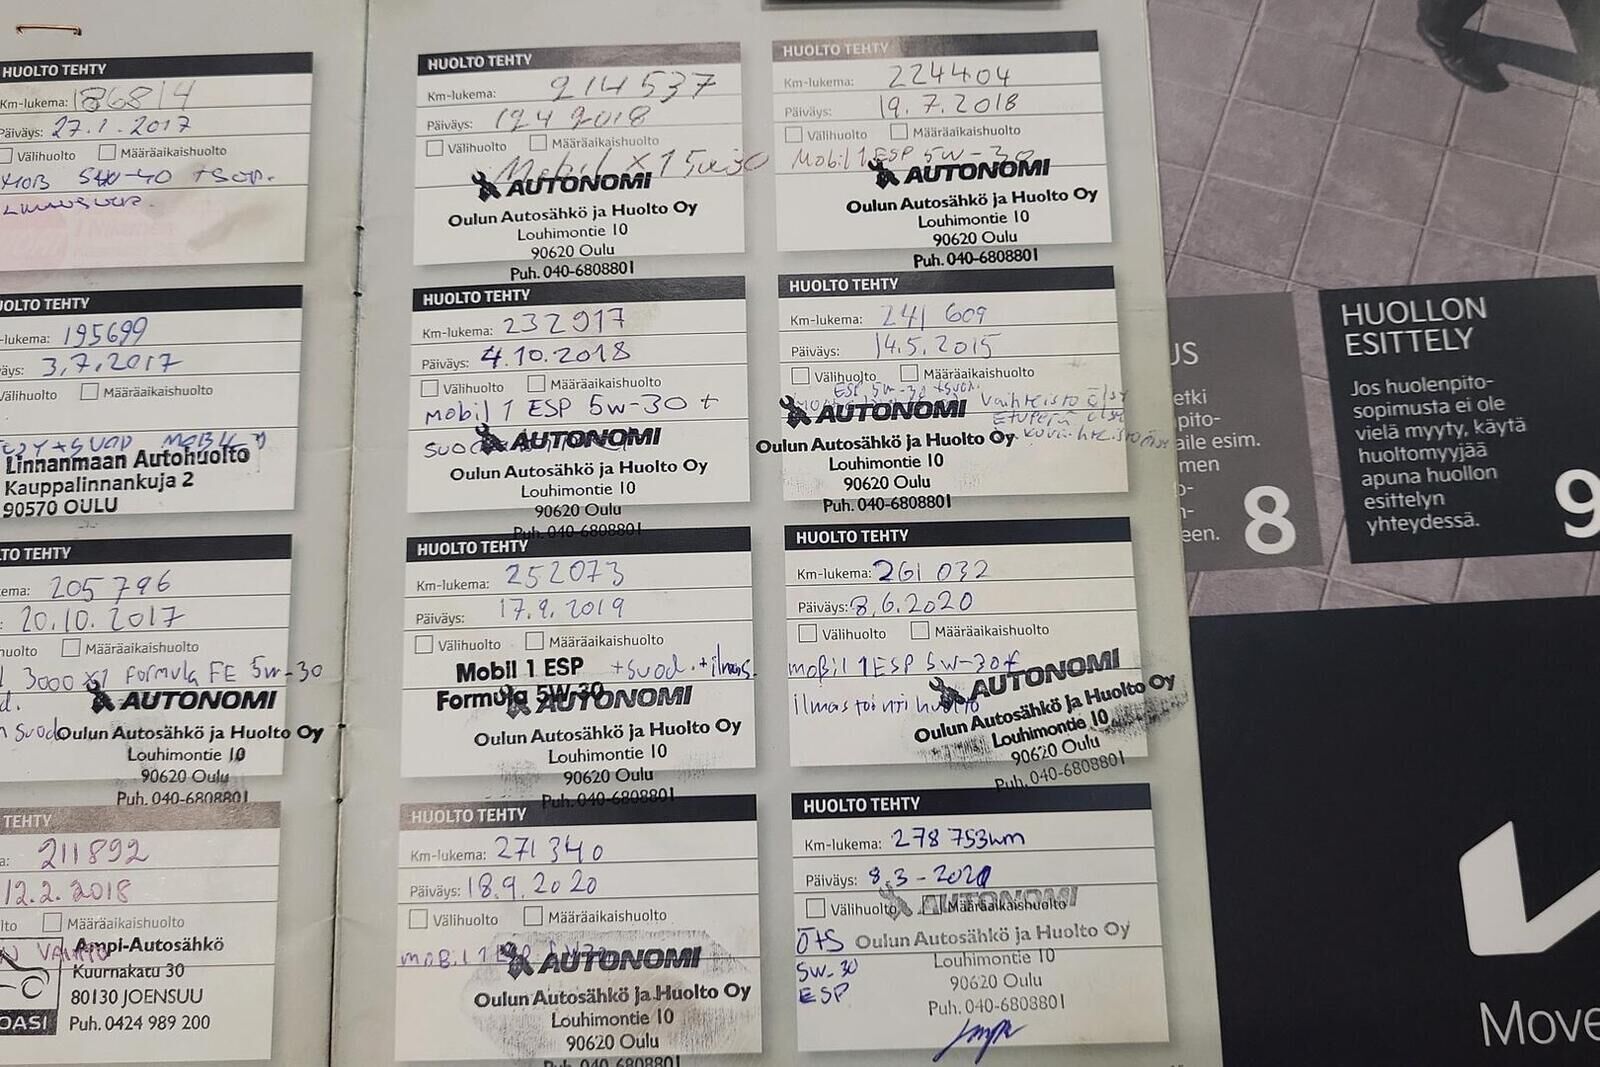 HUOLTO TEHTY
Km-lukema: 186814
Päiväys: 27.1.2017
Välihuolto Määräaikaishuolto
5W-40 + SOP.
HUOLTO TEHTY
-lukema: 195699
väys: 3.7.2017
Välihuolto Määräaikaishuolto
Linnanmaan Autohuolto
Kauppalinnankuja 2
90570 OULU
LTO TEHTY
ema: 205796
: 20.10.2017
huolto Määräaikaishuolto
3000 x1 Formula FE 5w-30
AUTONOMI
Oulun Autosähkö ja Huolto Oy
Louhimontie 10
90620 Oulu
Puh. 040-6808801
TEHTY
a: 211892
12.2.2018
lto Määräaikaishuolto
Ampi-Autosähkö
Kuurnakatu 30
80130 JOENSUU
OASI Puh. 0424 989 200
HUOLTO TEHTY
Km-lukema: 214537
Päiväys: 12 4 2018
Välihuolto Määräaikaishuolto
Mobil x1 5w30
AUTONOMI
Oulun Autosähkö ja Huolto Oy
Louhimontie 10
90620 Oulu
Puh. 040-6808801
HUOLTO TEHTY
Km-lukema: 232917
Päiväys: 4.10.2018
Välihuolto Määräaikaishuolto
mobil 1 ESP 5w-30 +
AUTONOMI
Oulun Autosähkö ja Huolto Oy
Louhimontie 10
90620 Oulu
Puh. 040-6808801
HUOLTO TEHTY
Km-lukema: 252073
Päiväys: 17.9.2019
Välihuolto Määräaikaishuolto
Mobil 1 ESP +suod. + ilmas.
Formula 5W-30
AUTONOMI
Oulun Autosähkö ja Huolto Oy
Louhimontie 10
90620 Oulu
Puh. 040-6808801
HUOLTO TEHTY
Km-lukema: 271340
Päiväys: 18.9.2020
Välihuolto Määräaikaishuolto
mobil 1
AUTONOMI
Oulun Autosähkö ja Huolto Oy
Louhimontie 10
90620 Oulu
Puh. 040-6808801
HUOLTO TEHTY
Km-lukema: 224404
Päiväys: 19.7.2018
Välihuolto Määräaikaishuolto
Mobil 1 ESP 5w-30
AUTONOMI
Oulun Autosähkö ja Huolto Oy
Louhimontie 10
90620 Oulu
Puh. 040-6808801
HUOLTO TEHTY
Km-lukema: 241 609
Päiväys: 14.5.2015
Välihuolto Määräaikaishuolto
ESP 5w-30 +suod.
Vaihteisto öljy
AUTONOMI
Oulun Autosähkö ja Huolto Oy
Louhimontie 10
90620 Oulu
Puh. 040-6808801
HUOLTO TEHTY
Km-lukema: 261 032
Päiväys: 8.6.2020
Välihuolto Määräaikaishuolto
mobil 1 ESP 5w-30 +
ilmastointi huolto
AUTONOMI
Oulun Autosähkö ja Huolto Oy
Louhimontie 10
90620 Oulu
Puh. 040-6808801
HUOLTO TEHTY
Km-lukema: 278 753
Päiväys: 8.3-2021
Välihuolto Määräaikaishuolto
AUTONOMI
Ö+S
5W-30
ESP
Oulun Autosähkö ja Huolto Oy
Louhimontie 10
90620 Oulu
Puh. 040-6808801
US
etki
pito-
aile esim.
men
o-
n-
een.
8
HUOLLON
ESITTELY
Jos huolenpito-
sopimusta ei ole
vielä myyty, käytä
huoltomyyjää
apuna huollon
esittelyn
yhteydessä.
9
Move